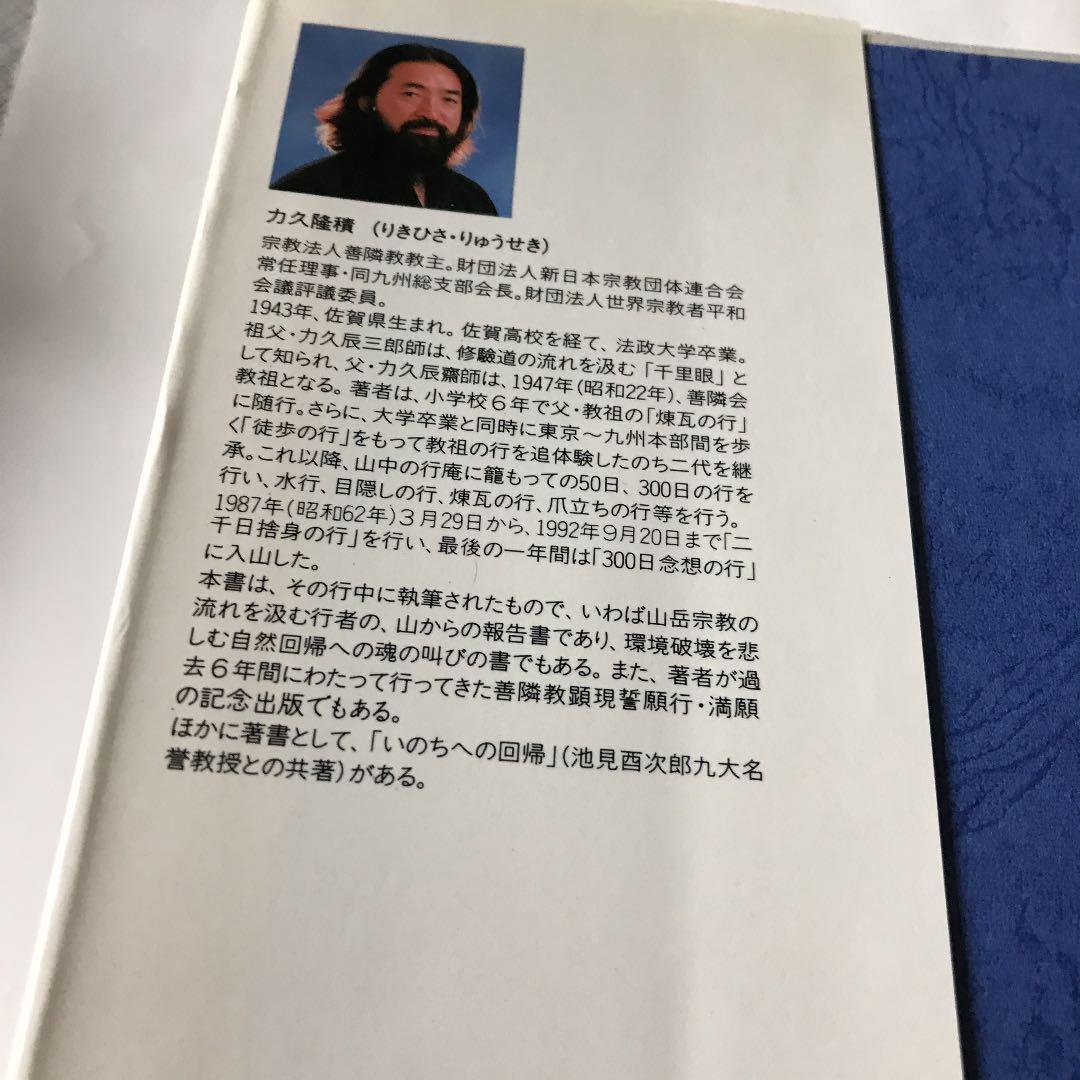 力久隆積 (りきひさ・りゅうせき)
宗教法人善隣教教主。財団法人新日本宗教団体連合会
常任理事・同九州総支部会長。財団法人世界宗教者平和
会議評議委員。
1943年、佐賀県生まれ。佐賀高校を経て、法政大学卒業。
祖父・力久辰三郎師は、修験道の流れを汲む「千里眼」と
して知られ、父・力久辰齋師は、1947年(昭和22年)、善隣会
教祖となる。著者は、小学校6年で父・教祖の「煉瓦の行」
に随行。さらに、大学卒業と同時に東京〜九州本部間を歩
く「徒歩の行」をもって教祖の行を追体験したのち二代を継
承。これ以降、山中の行庵に籠もっての50日、300日の行を
行い、水行、目隠しの行、煉瓦の行、爪立ちの行等を行う。
1987年(昭和62年)3月29日から、1992年9月20日まで「二
千日捨身の行」を行い、最後の一年間は「300日念想の行」
に入山した。
本書は、その行中に執筆されたもので、いわば山岳宗教の
流れを汲む行者の、山からの報告書であり、環境破壊を悲
しむ自然回帰への魂の叫びの書でもある。また、著者が過
去6年間にわたって行ってきた善隣教顕現誓願行・満願
の記念出版でもある。
ほかに著書として、「いのちへの回帰」(池見酉次郎九大名
誉教授との共著)がある。